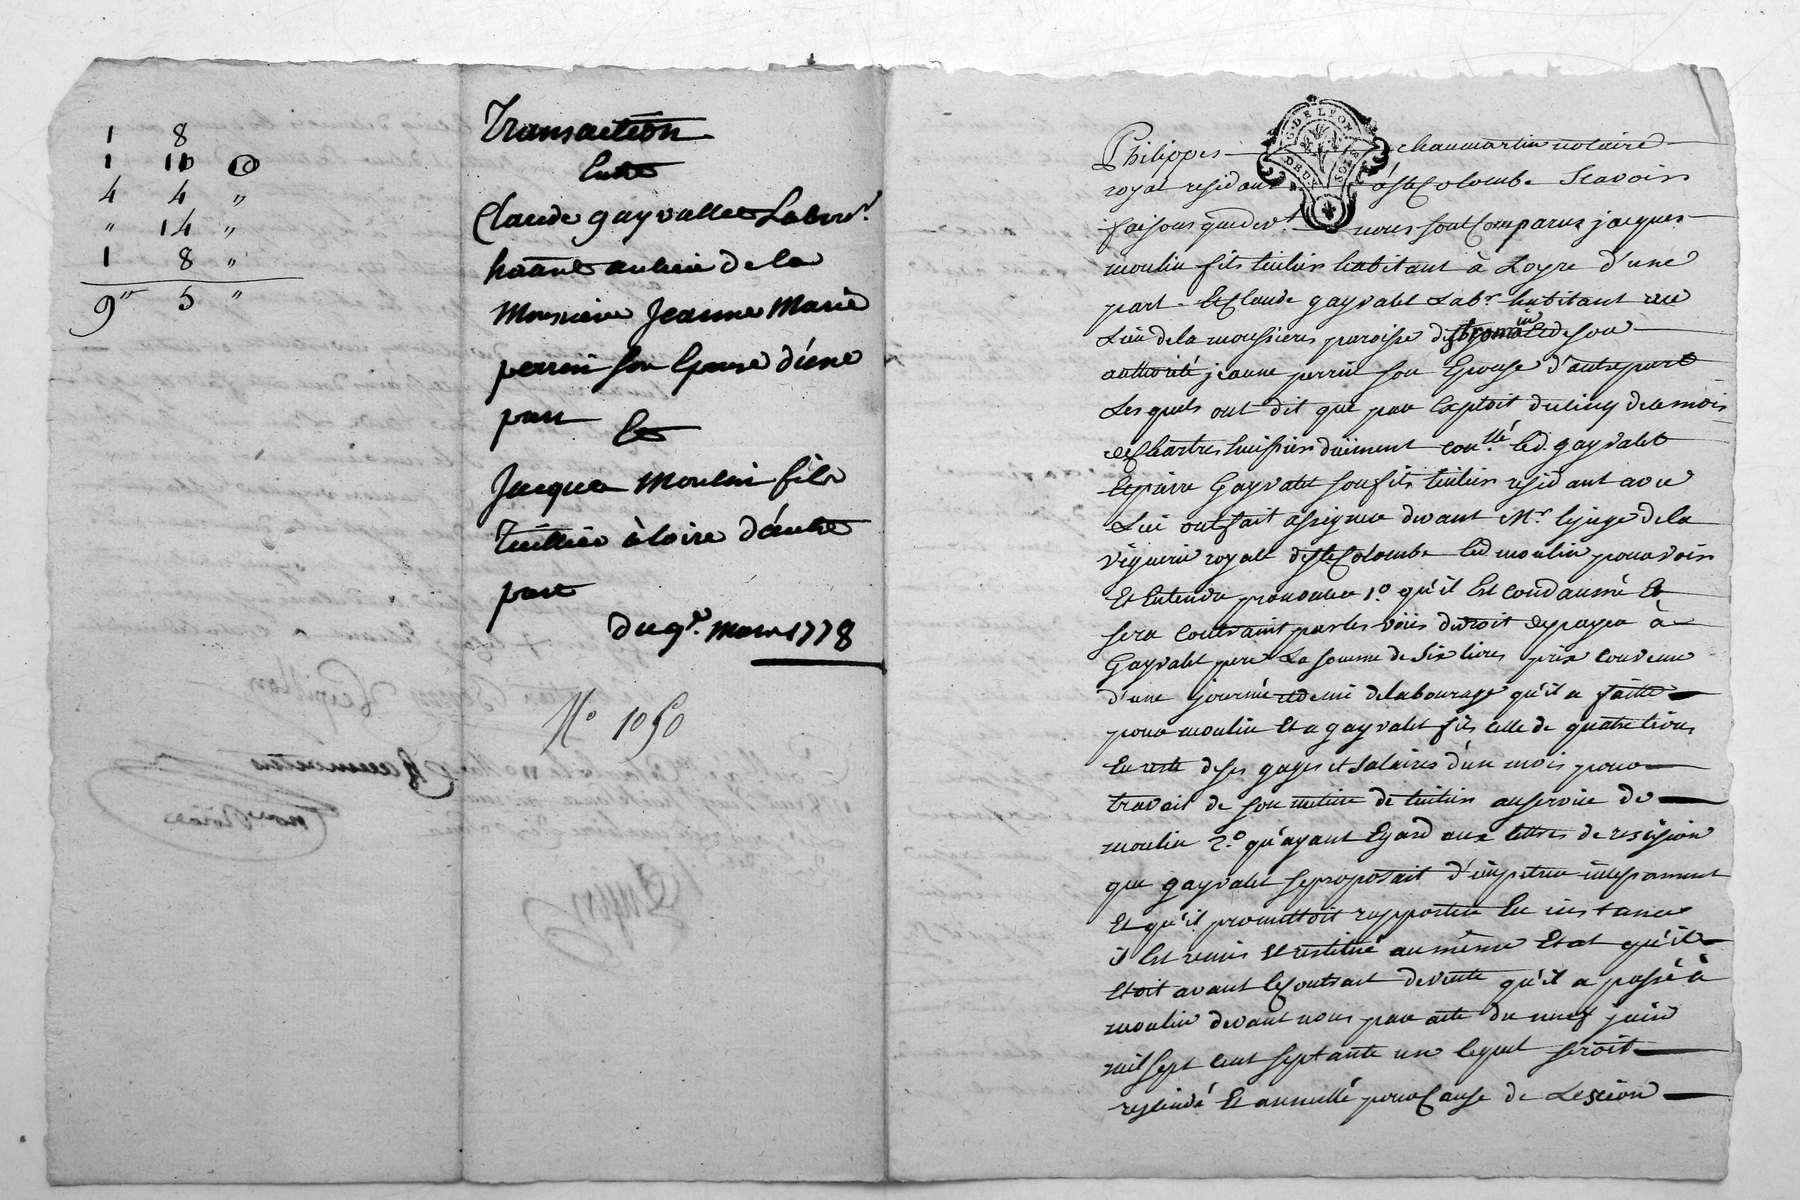 1 8
1 10
4 4 "
" 14 "
1 8 "
9" 5 "
Transaction
Entre
Claude gayvallet Labour.
habitant au lieu de la
Moussiere Jeanne Marie
perrin son Epouse d'une
part Et
Jacques Moulin fils
tuillier à loire d'autre
part
du 9e. Mars 1778
No 1050
G. DE LYON
DEUX SOLS
Philippes chaumartin notaire
royal residant à Ste Colombe Scavoir
faisons que devt. nous sont Comparus jacques
moulin fils tuilier habitant à Loyre d'une
part Et Claude gayvalet Labr. habitant au
Lieu de la moussiere paroisse de St romain Et de son
authorité jeanne perrin son Epouse d'autre part
Lesquels ont dit que par Exploit du cinq de ce mois
de Chartres huissier düement conllé. led. gayvalet
Et pierre Gayvalet son fils tuilier residant avec
Lui ont fait assigner devant Mr. le juge de la
viguerie royale de Ste Colombe led moulin pour voir
Et Entendre prononcer 1o. qu'il Est condamné Et
sera contraint par les voies de droit de payer à
Gayvalet pere La somme de Six livres prix convenu
d'une journée et demi de labourage qu'il a faitte
pour moulin Et a gayvalet fils celle de quatre livres
En reste de ses gages et salaires d'un mois pour
travail de son metier de tuilier au service de
moulin 2.o qu'ayant Egard aux lettres de rescision
que gayvalet se proposait d'impetrer incessament
Et qu'il promettoit rapporter En instance
il Est remis Et restitué au même Etat qu'il
Etoit avant le Contract de vente qu'il a passé à
moulin devant nous par acte du neuf juin
mil sept cent septante un lequel seroit
rescindé Et annullé pour Cause de Lescion